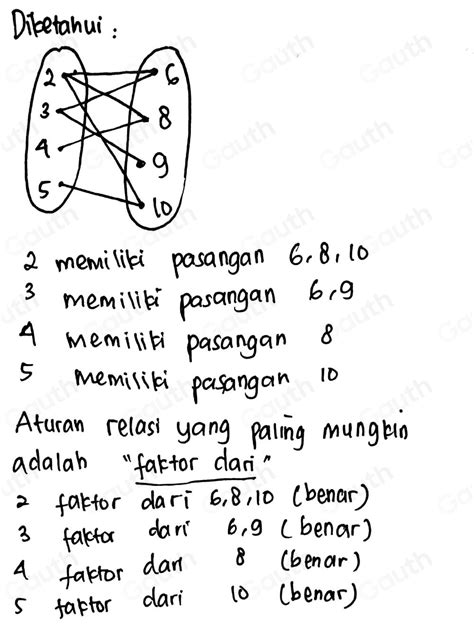 Diketahui :
2 6
3 8
4 9
5 10
2 memiliki pasangan 6, 8, 10
3 memiliki pasangan 6, 9
4 memiliki pasangan 8
5 memiliki pasangan 10
Aturan relasi yang paling mungkin
adalah "faktor dari"
2 faktor dari 6, 8, 10 (benar)
3 faktor dari 6, 9 (benar)
4 faktor dari 8 (benar)
5 faktor dari 10 (benar)
Gauth